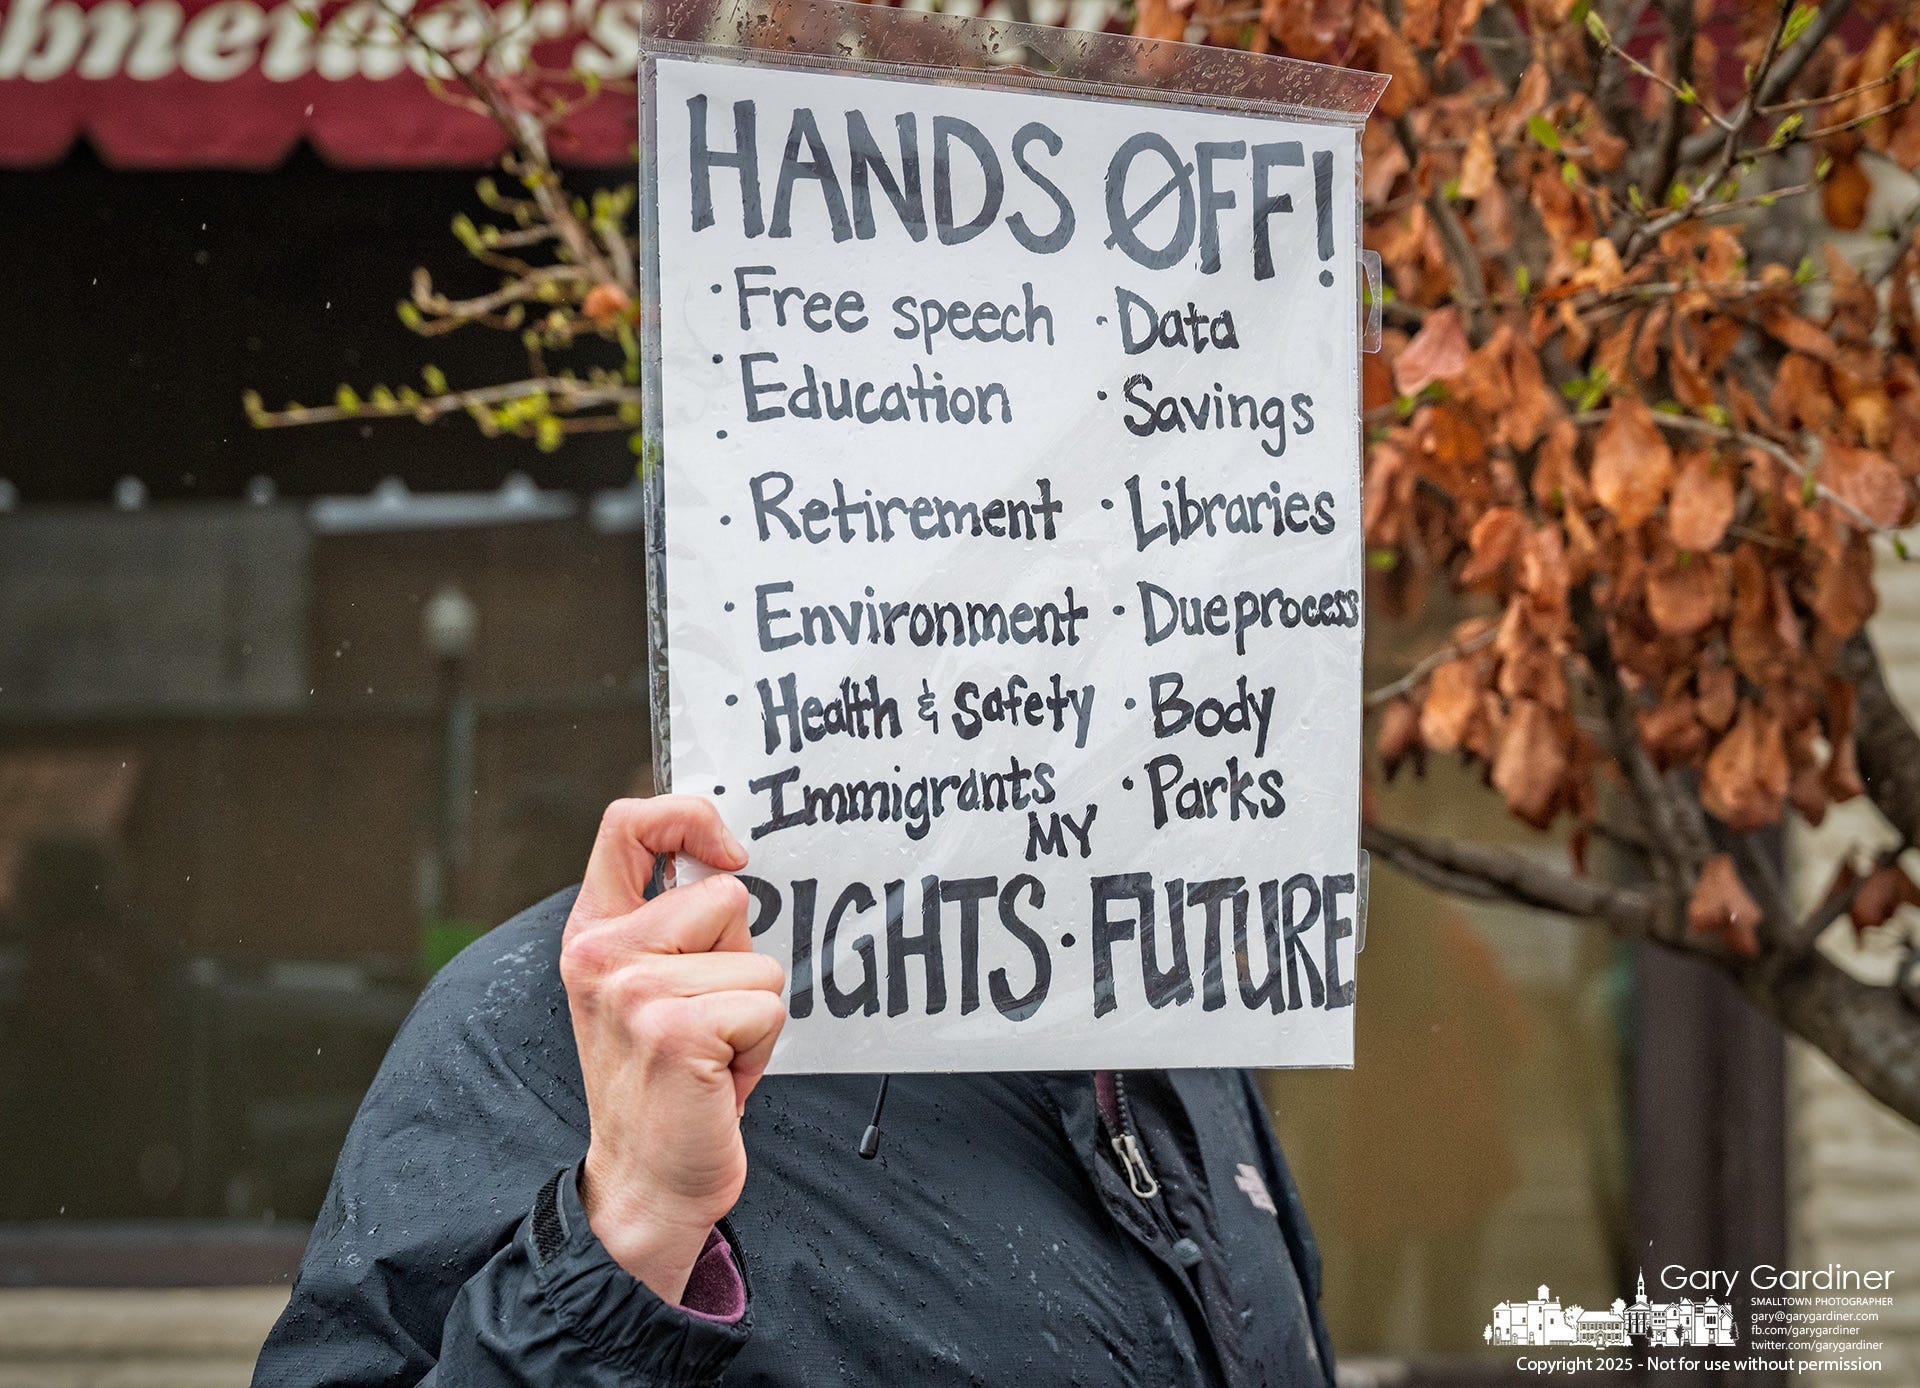 HANDS OFF!
• Free speech
• Education
•
• Retirement
• Environment
• Health & Safety
• Immigrants
• Data
• Savings
• Libraries
• Due process
• Body
• Parks
MY
RIGHTS • FUTURE
Gary Gardiner
SMALLTOWN PHOTOGRAPHER
gary@garygardiner.com
fb.com/garygardiner
twitter.com/garygardiner
Copyright 2025 - Not for use without permission